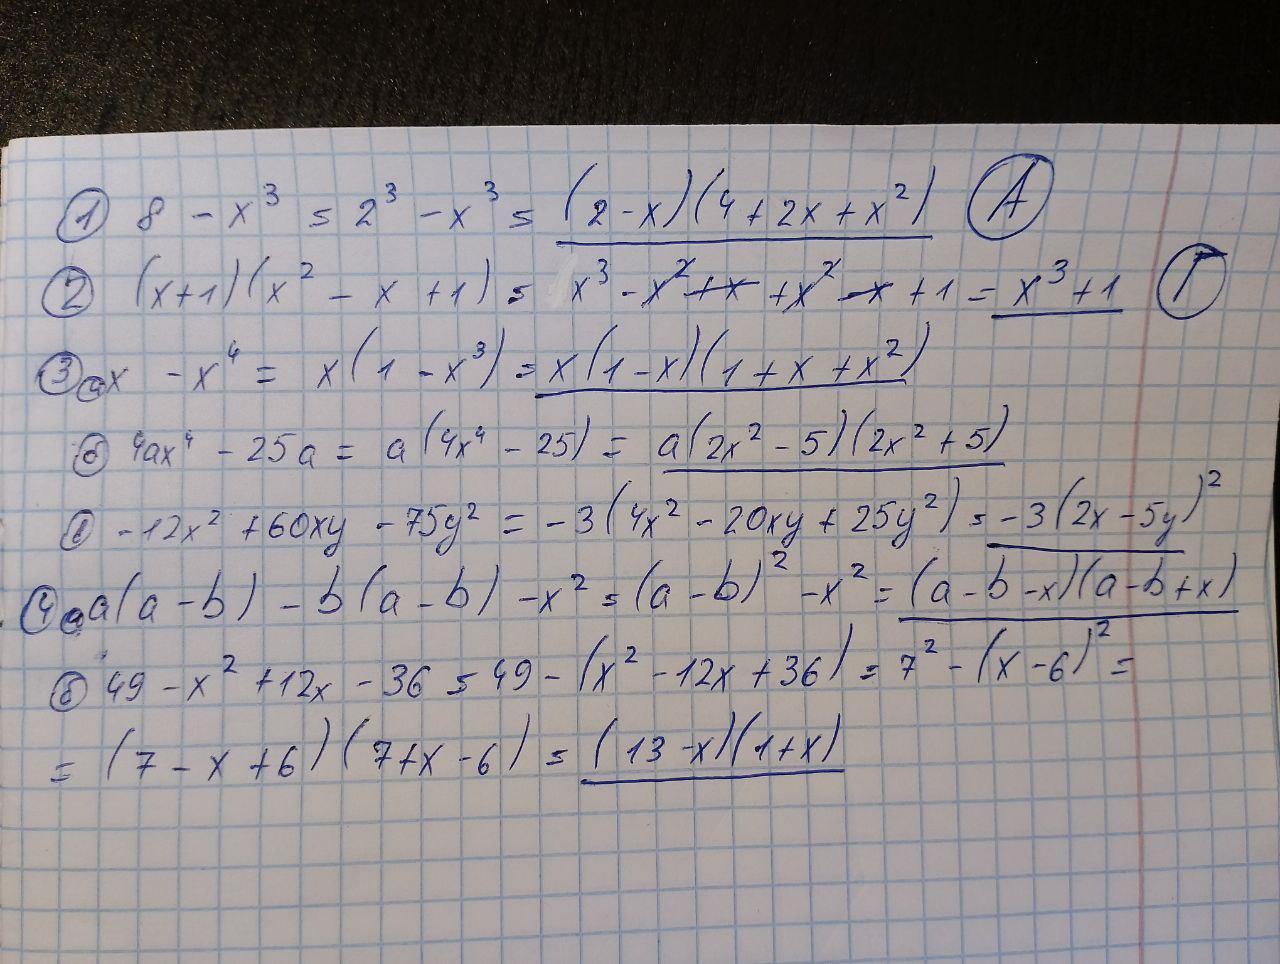 ① 8 - x³ = 2³ - x³ = (2 - x)(4 + 2x + x²) Ⓐ
② (x+1)(x² - x + 1) = x³ - x² + x + x² - x + 1 = x³ + 1 Г
③ а x - x⁴ = x(1 - x³) = x(1 - x)(1 + x + x²)
б 4ax⁴ - 25a = a(4x⁴ - 25) = a(2x² - 5)(2x² + 5)
в -12x² + 60xy - 75y² = -3(4x² - 20xy + 25y²) = -3(2x - 5y)²
④ а a(a - b) - b(a - b) - x² = (a - b)² - x² = (a - b - x)(a - b + x)
б 49 - x² + 12x - 36 = 49 - (x² - 12x + 36) = 7² - (x - 6)² =
= (7 - x + 6)(7 + x - 6) = (13 - x)(1 + x)